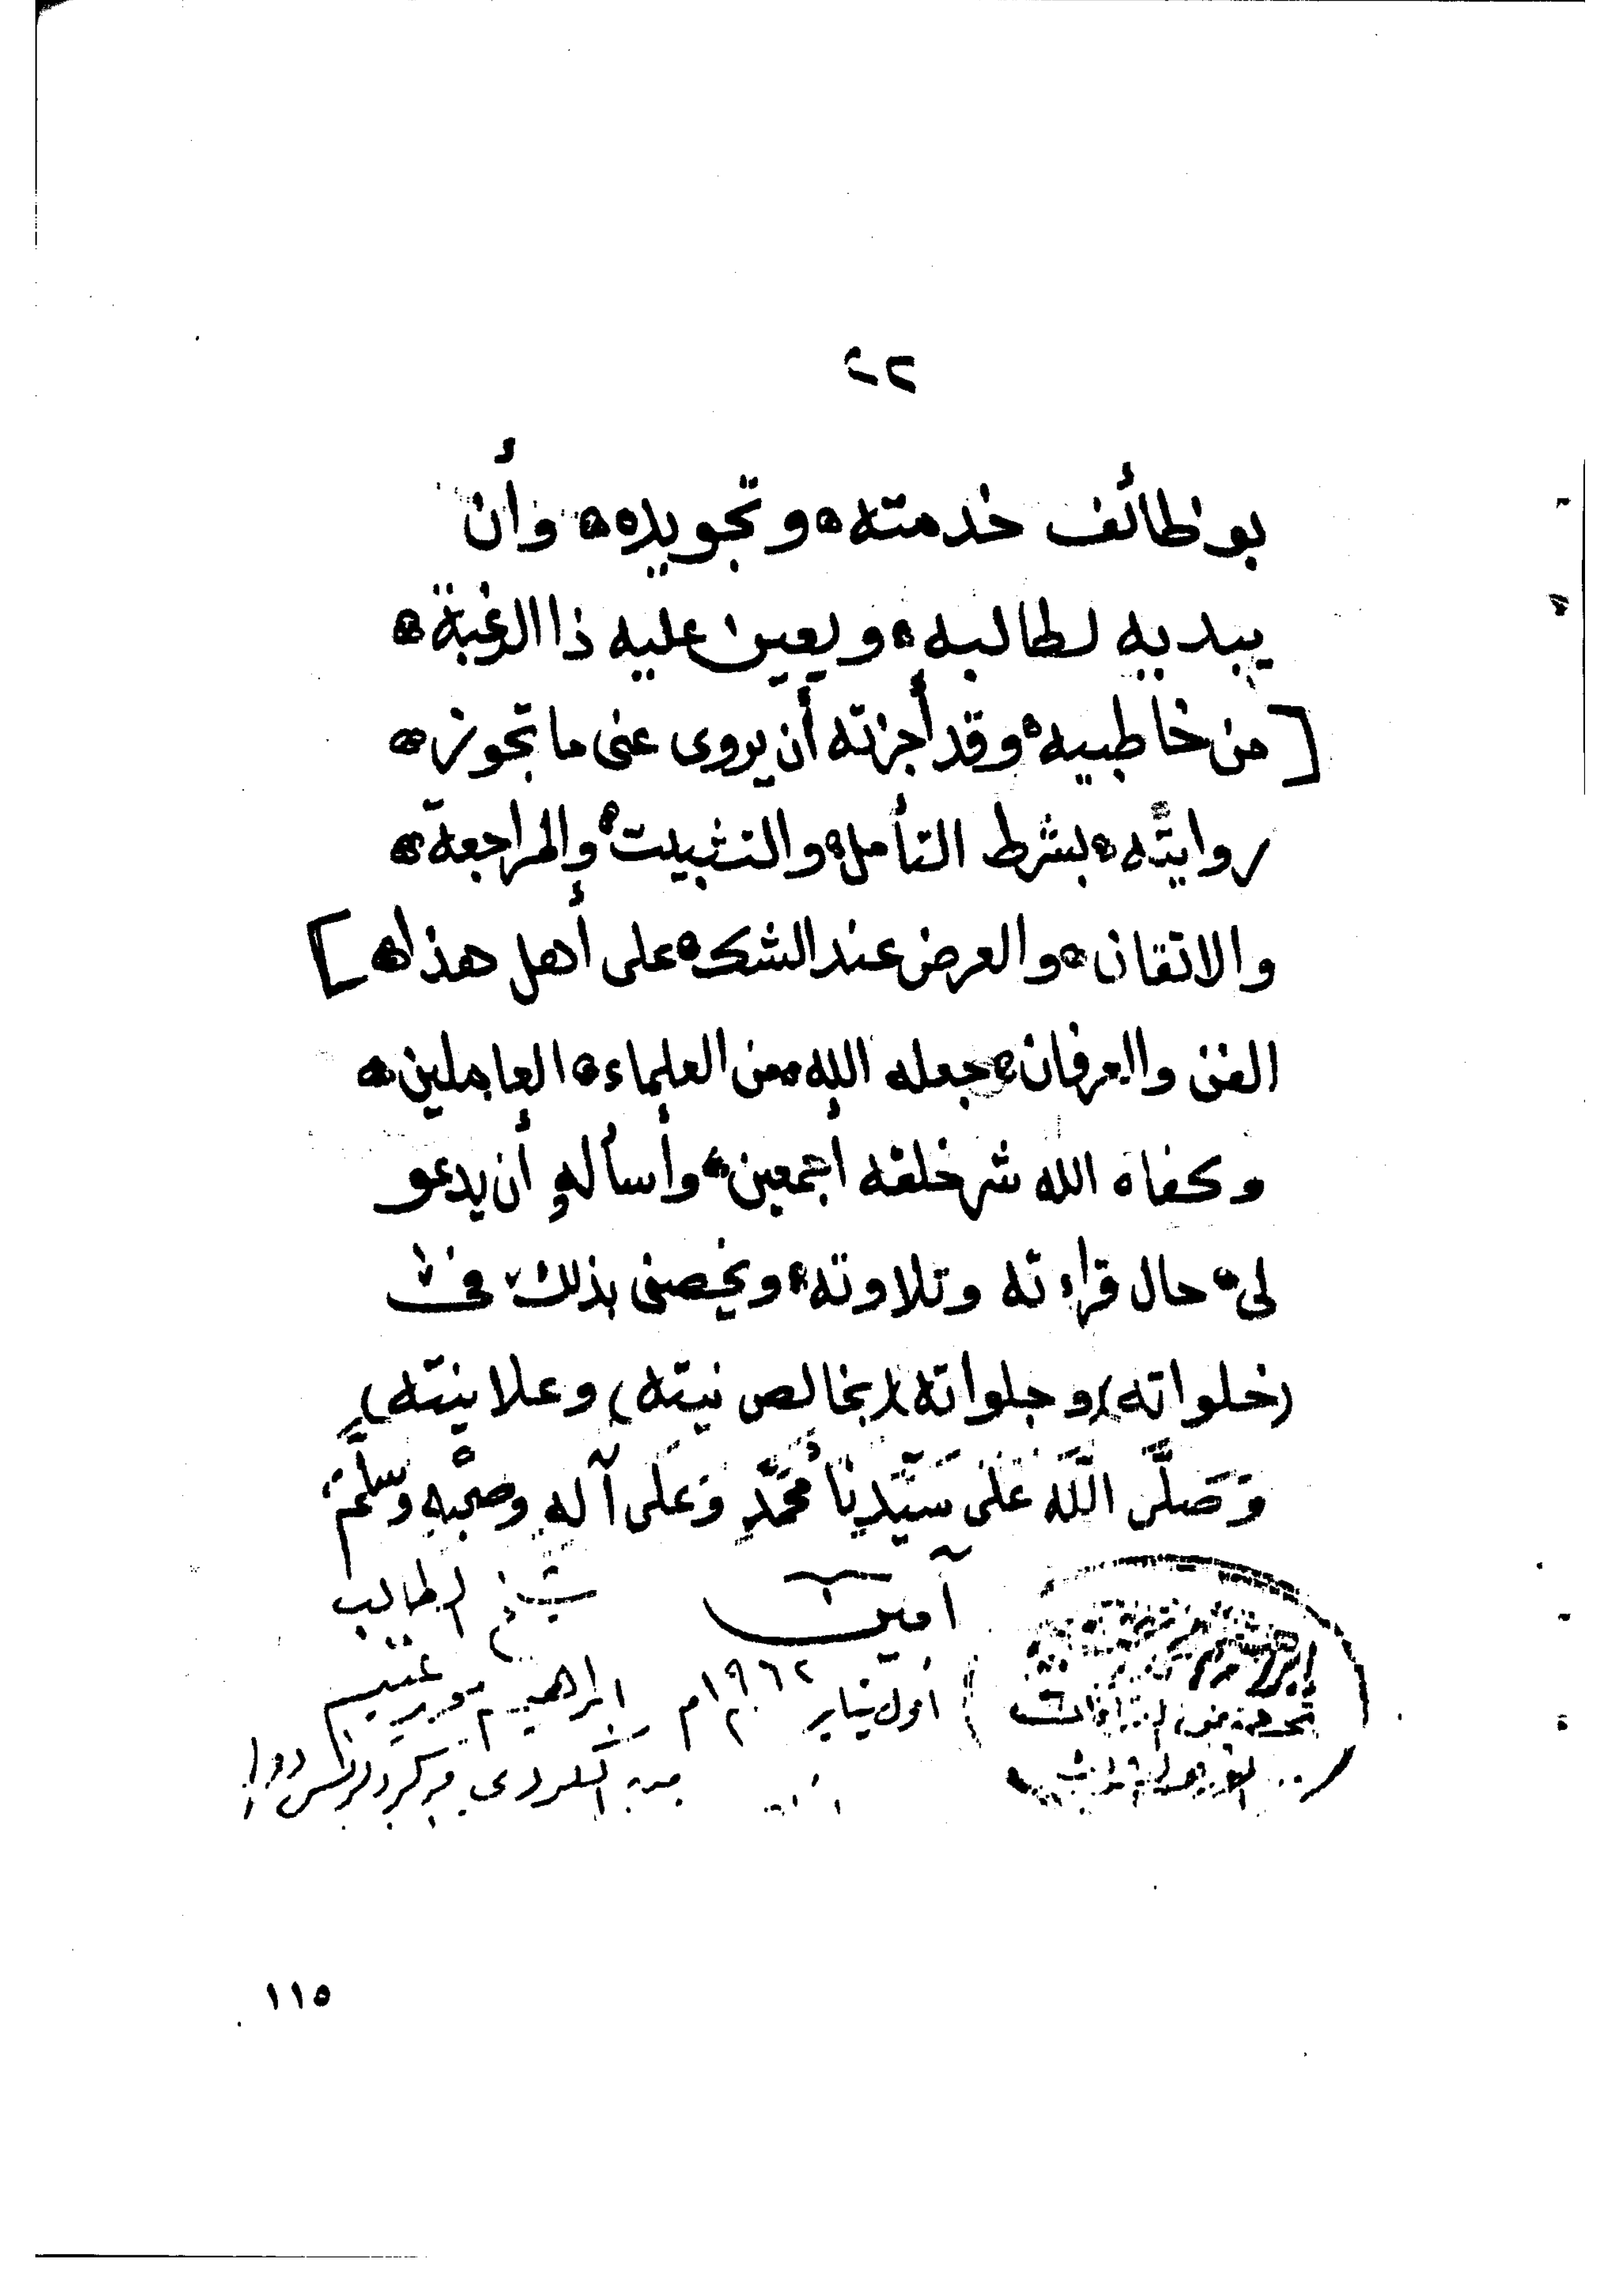 ٢٢
بوظائف خدمته ٥ وتجويده ٥ وأن
يبديه لطالبه ٥ ويعين عليه ذا الرغبة ٥
[من خاطبيه ٥ وقد أجزته أن يروى عنى ما تجوز ٥
روايته ٥ بشرط التأمل ٥ والتثبيت ٥ والمراجعة ٥
والاتقان ٥ والعرض عند الشك ٥ على أهل هذا ٥]
الفن والعرفان ٥ جعله الله ٥ من العلماء ٥ العاملين ٥
وكفاه الله شر خلقه أجمعين ٥ وأسأله أن يدعو
لى ٥ حال قراءته وتلاوته ٥ ويخصنى بذلك فى
(خلواته) (وجلواته) (بخالص نيته) وعلانيته)
وَصَلَّى اللَّه عَلَى سَيِّدِنَا مُحَمَّدٍ وَعَلَى آلهِ وصَحْبِهِ وسَلَّمَ
آمين
شيخ الطالب
إبراهيم
أول يناير ١٩٦٢م
١١٥